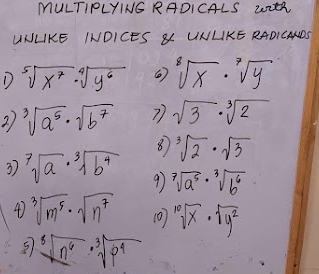 MULTIPLYING RADICALS with
UNLIKE INDICES & UNLIKE RADICANDS
1) ⁵√x⁷ · ⁴√y⁶
2) ³√a⁵ · √b⁷
3) ⁷√a · ³√b⁴
4) ³√m⁵ · √n⁷
5) ⁸√n⁶ · ³√p⁴
6) ⁸√x · ⁷√y
7) √3 · ³√2
8) ³√2 · √3
9) ⁷√a⁵ · ³√b⁶
10) ¹⁰√x · √y²